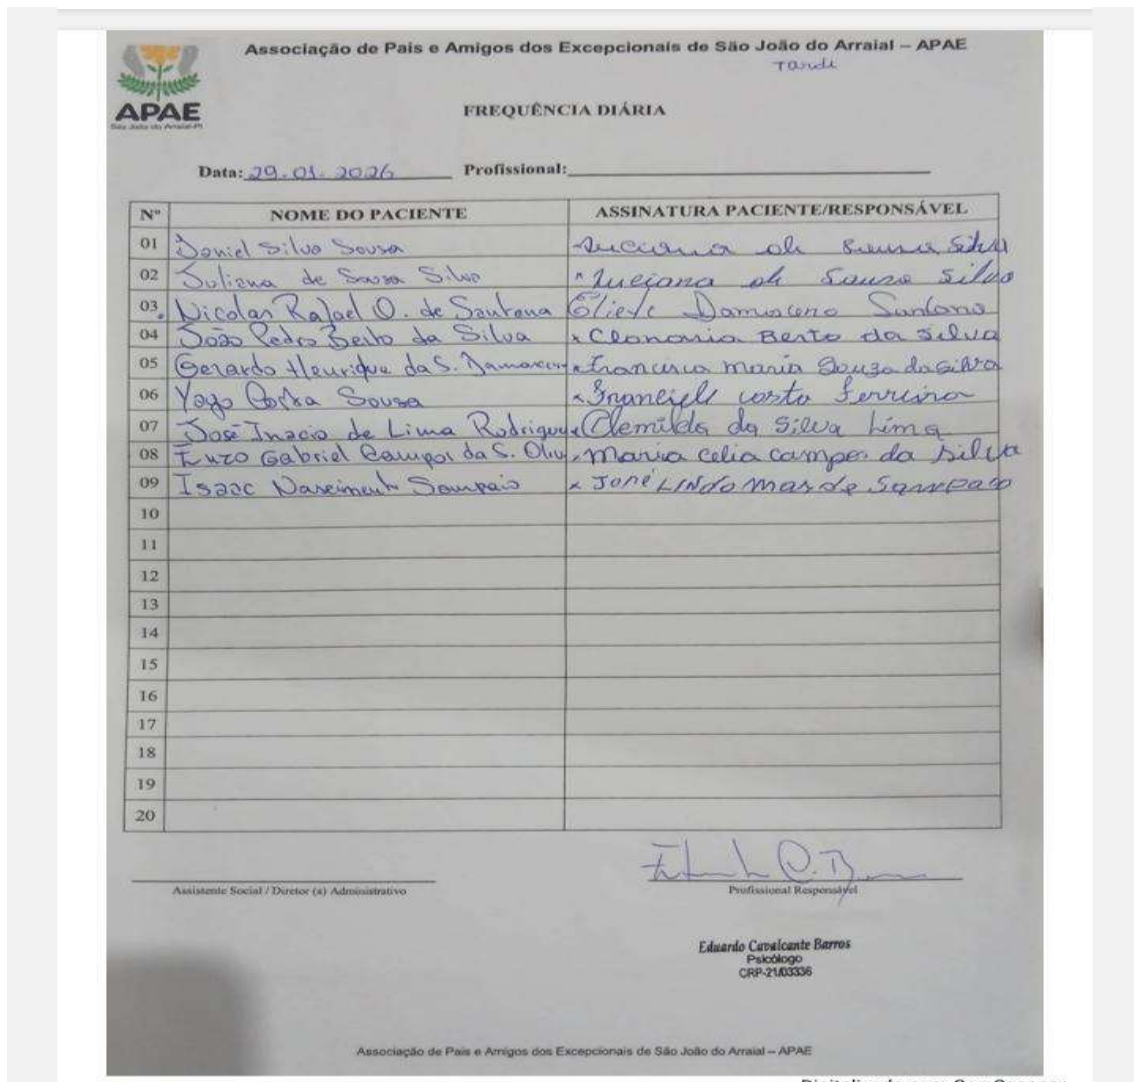 Associação de Pais e Amigos dos Excepcionais de São João do Arraial – APAE
Tarde
APAE
São João do Arraial-PI
FREQUÊNCIA DIÁRIA
Data: 29.01.2026 Profissional:
Nº NOME DO PACIENTE ASSINATURA PACIENTE/RESPONSÁVEL
01 Daniel Silva Sousa Luciana de Sousa Silva
02 Juliana de Sousa Silva Luciana de Souza Silva
03 Nicolas Rafael O. de Santana Eliete Damasceno Santana
04 João Pedro Berto da Silva x Cleonania Berto da Silva
05 Gerardo Henrique da S. Damasceno x Francisca Maria Souza da Silva
06 Yago Costa Sousa x Franciele Costa Ferreira
07 José Inacio de Lima Rodrigues x Clemilda da Silva Lima
08 Enzo Gabriel Campos da S. Oliv x Maria Celia Campos da Silva
09 Isaac Nascimento Sampaio x José Lindomar de Sampaio
10
11
12
13
14
15
16
17
18
19
20
Assistente Social / Diretor (a) Administrativo Profissional Responsável
Eduardo Cavalcante Barros
Psicólogo
CRP-21/03336
Associação de Pais e Amigos dos Excepcionais de São João do Arraial – APAE